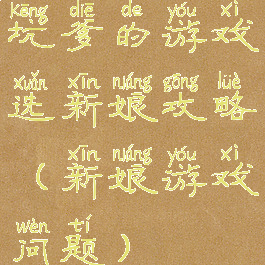 kēng diē de yóu xì
坑爹的游戏
xuǎn xīn niáng gōng lüè
选新娘攻略
xīn niáng yóu xì
（新娘游戏
wèn tí
问题）